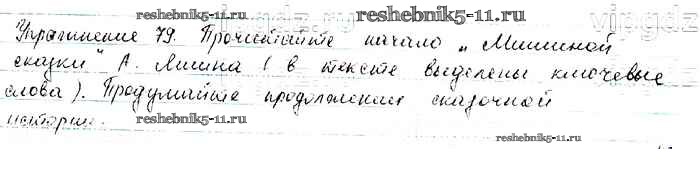 reshebnik5-11.ru
vipgdz
Упражнение 79. Прочитайте начало „Мишиной
сказки" А. Лишина ( в тексте выделены ключевые
слова ). Продумайте продолжение сказочной
истории.
reshebnik5-11.ru
reshebnik5-11.ru
reshebnik5-11.ru